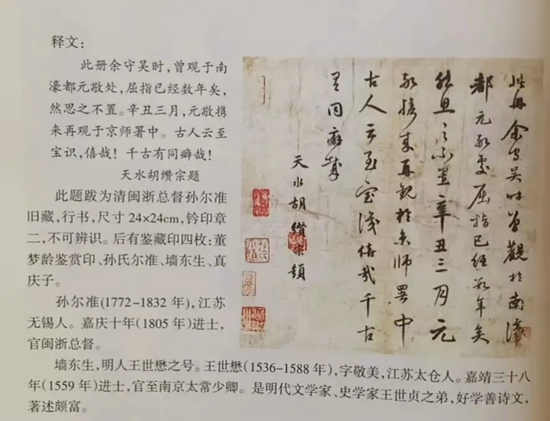 释文：
此册余守吴时，曾观于南
濠都元敬处，屈指已经数年矣，
然思之不置。辛丑三月，元敬携
来再观于京师署中。古人云至
宝识，僖哉！千古有同癖哉！
天水胡缵宗题
此题跋为清闽浙总督孙尔准
旧藏，行书，尺寸24×24cm，钤印章
二，不可辨识。后有鉴藏印四枚：董
梦龄鉴赏印、孙氏尔准、墙东生、真
庆子。
孙尔准(1772-1832年)，江苏
无锡人。嘉庆十年(1805年)进士，
官闽浙总督。
墙东生，明人王世懋之号。王世懋(1536-1588年)，字敬美，江苏太仓人。嘉靖三十八
年(1559年)进士，官至南京太常少卿。是明代文学家、史学家王世贞之弟，好学善诗文，
著述颇富。
此册余守吴時曾觀於南濠
都元敬處屈指已經數年矣
然思之不置辛丑三月元
敬携來再觀於京師署中
古人云至宝識僖哉千古
有同癖哉
天水胡纘宗題